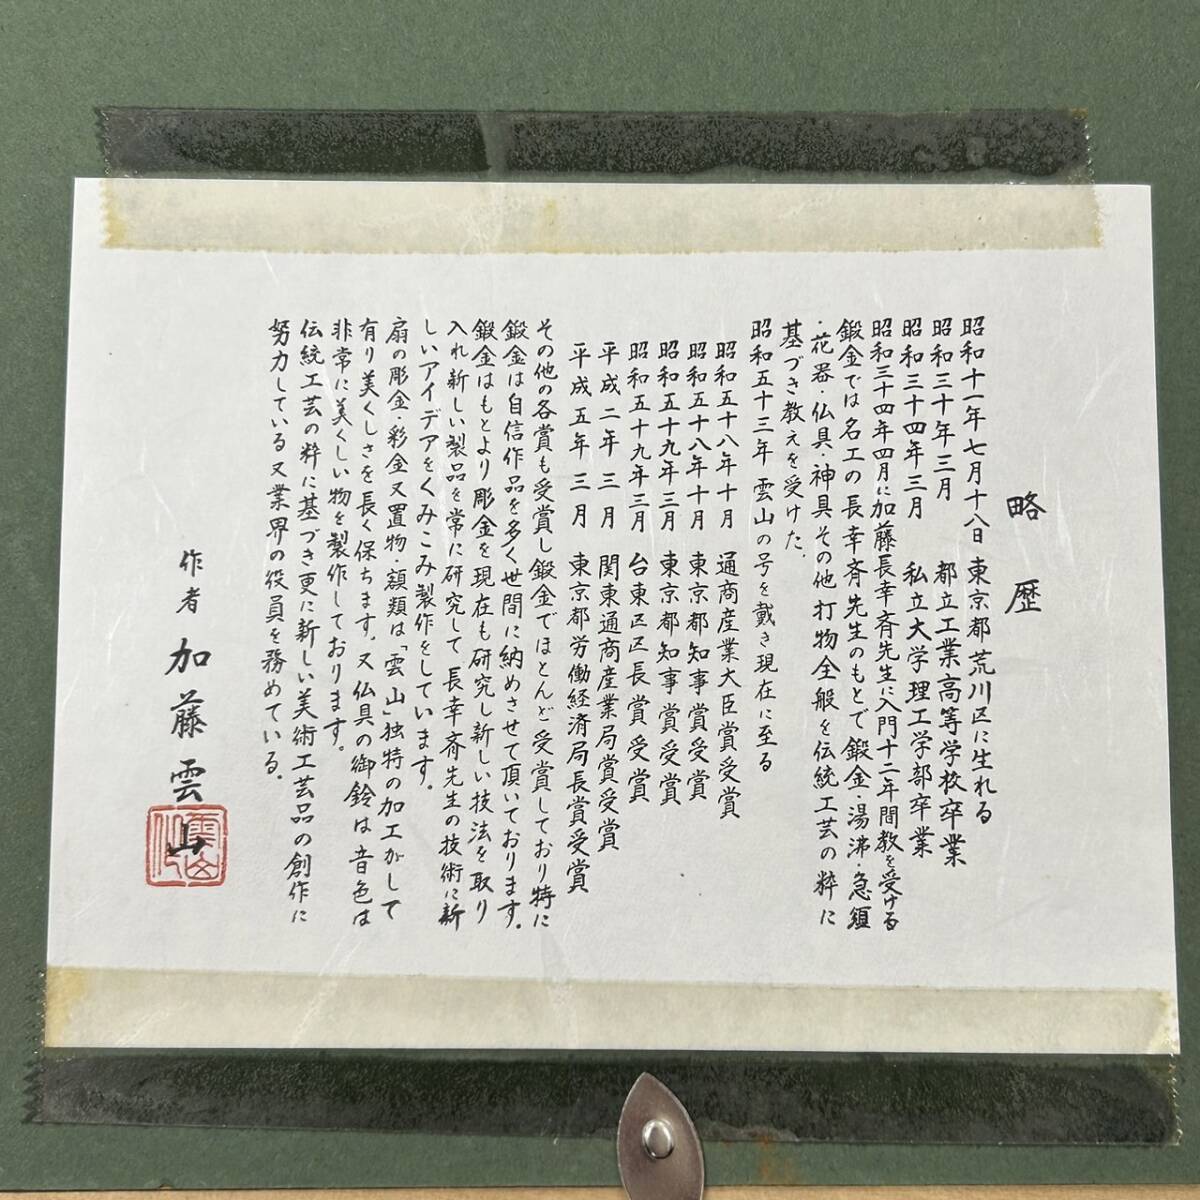 略歴
昭和十一年七月十八日 東京都荒川区に生れる
昭和三十年三月 都立工業高等学校卒業
昭和三十四年三月 私立大学理工学部卒業
昭和三十四年四月に加藤長幸斉先生に入門十二年間教を受ける
鍛金では名工の長幸斉先生のもとで鍛金・湯沸・急須
・花器・仏具・神具その他打物全般を伝統工芸の粋に
基づき教えを受けた.
昭和五十三年 雲山の号を戴き現在に至る
昭和五十八年十月 通商産業大臣賞受賞
昭和五十八年十月 東京都知事賞受賞
昭和五十九年三月 東京都知事賞受賞
昭和五十九年三月 台東区区長賞受賞
平成二年三月 関東通商産業局賞受賞
平成五年三月 東京都労働経済局長賞受賞
その他の各賞も受賞し鍛金でほとんど受賞しており特に
鍛金は自信作品を多く世間に納めさせて頂いております.
鍛金はもとより彫金を現在も研究し新しい技法を取り
入れ新しい製品を常に研究して長幸斉先生の技術に新
しいアイデアをくみこみ製作をしています.
扇の彫金・彩金又置物・額類は「雲山」独特の加工がして
有り美くしさを長く保ちます.又仏具の御鈴は音色は
非常に美くしい物を製作しております。
伝統工芸の粋に基づき更に新しい美術工芸品の創作に
努力している又業界の役員を務めている.
作者 加藤雲山